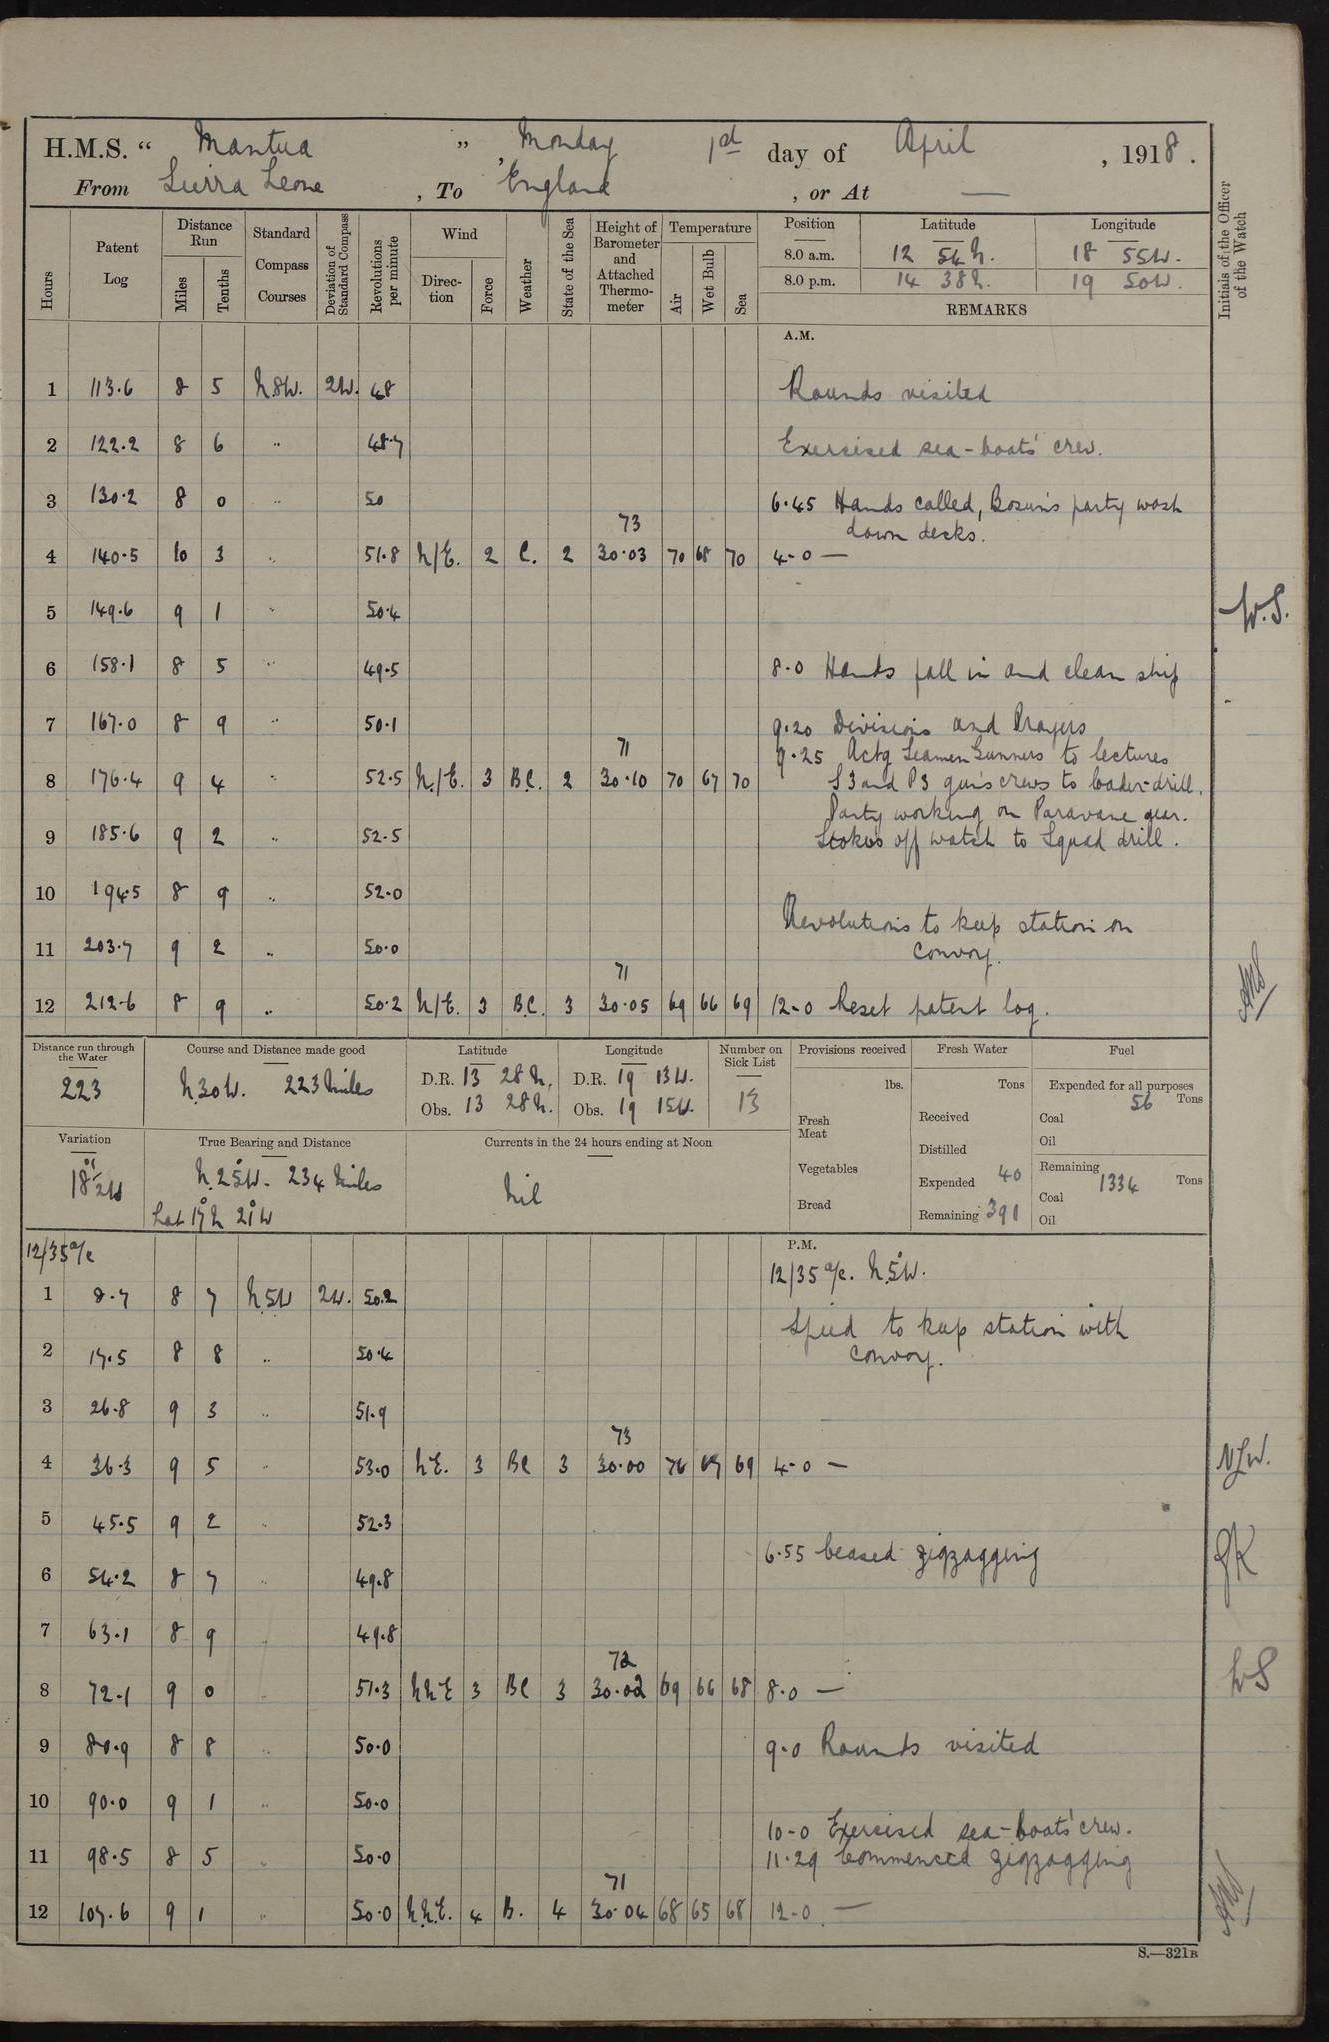 H.M.S. “ Mantua ” , Monday 1st day of April , 1918 .
From Sierra Leone , To England , or At —
Hours
Patent Log
Distance Run
Miles
Tenths
Standard Compass Courses
Deviation of Standard Compass
Revolutions per minute
Wind
Direction
Force
Weather
State of the Sea
Height of Barometer and Attached Thermometer
Temperature
Air
Wet Bulb
Sea
Position
Latitude
Longitude
8.0 a.m. 12 54 N. 18 55 W.
8.0 p.m. 14 38 N. 19 50 W.
REMARKS
Initials of the Officer of the Watch
A.M.
1 113.6 8 5 N.8W. 2W. 48 Rounds visited
2 122.2 8 6 " 48.7 Exercised sea-boats' crew.
3 130.2 8 0 " 50 6.45 Hands called, Bosun's party wash
73 down decks.
4 140.5 10 3 " 51.8 N/E. 2 C. 2 30.03 70 68 70 4-0 —
5 149.6 9 1 " 50.4 W.S.
6 158.1 8 5 " 49.5 8.0 Hands fall in and clean ship
7 167.0 8 9 " 50.1 9.20 Divisions and Prayers
71 9.25 Actg Seamen Gunners to lectures
8 176.4 9 4 " 52.5 N/E. 3 B.C. 2 30.10 70 67 70 S3 and P3 gun's crews to loader-drill.
Party working on Paravane gear.
9 185.6 9 2 " 52.5 Stokers off watch to Squad drill.
10 194.5 8 9 " 52.0
Revolutions to keep station on
11 203.7 9 2 " 50.0 convoy.
71
12 212.6 8 9 " 50.2 N/E. 3 B.C. 3 30.05 69 66 69 12-0 Reset patent log.
Distance run through the Water
223
Course and Distance made good
N.30W. 223 Miles
Latitude
D.R. 13 28 N.
Obs. 13 28 N.
Longitude
D.R. 19 13 W.
Obs. 19 15 W.
Number on Sick List
13
Provisions received
lbs.
Fresh Meat
Vegetables
Bread
Fresh Water
Tons
Received
Distilled
Expended 40
Remaining 391
Fuel
Expended for all purposes
56 Tons
Coal
Oil
Remaining
1334 Tons
Coal
Oil
Variation
18°1/2W
True Bearing and Distance
N.25°W. 234 Miles
Lat 17°N 21°W
Currents in the 24 hours ending at Noon
Nil
P.M.
12/35 a/c 12/35 a/c. N.5°W.
1 8.7 8 7 N.5W 2W. 50.2
Speed to keep station with
2 17.5 8 8 " 50.4 convoy.
3 26.8 9 3 " 51.9
73
4 36.3 9 5 " 53.0 NE. 3 BC 3 30.00 70 67 69 4-0 —
5 45.5 9 2 " 52.3
6.55 Ceased zigzagging
6 54.2 8 7 " 49.8
7 63.1 8 9 " 49.8
72
8 72.1 9 0 " 51.3 NNE 3 BC 3 30.02 69 66 68 8.0 — WS
9 80.9 8 8 " 50.0 9.0 Rounds visited
10 90.0 9 1 " 50.0
10-0 Exercised sea-boats' crew.
11 98.5 8 5 " 50.0 11.29 Commenced zigzagging
71
12 107.6 9 1 " 50.0 N.N.E. 4 B. 4 30.04 68 65 68 12-0 —
S.—321B